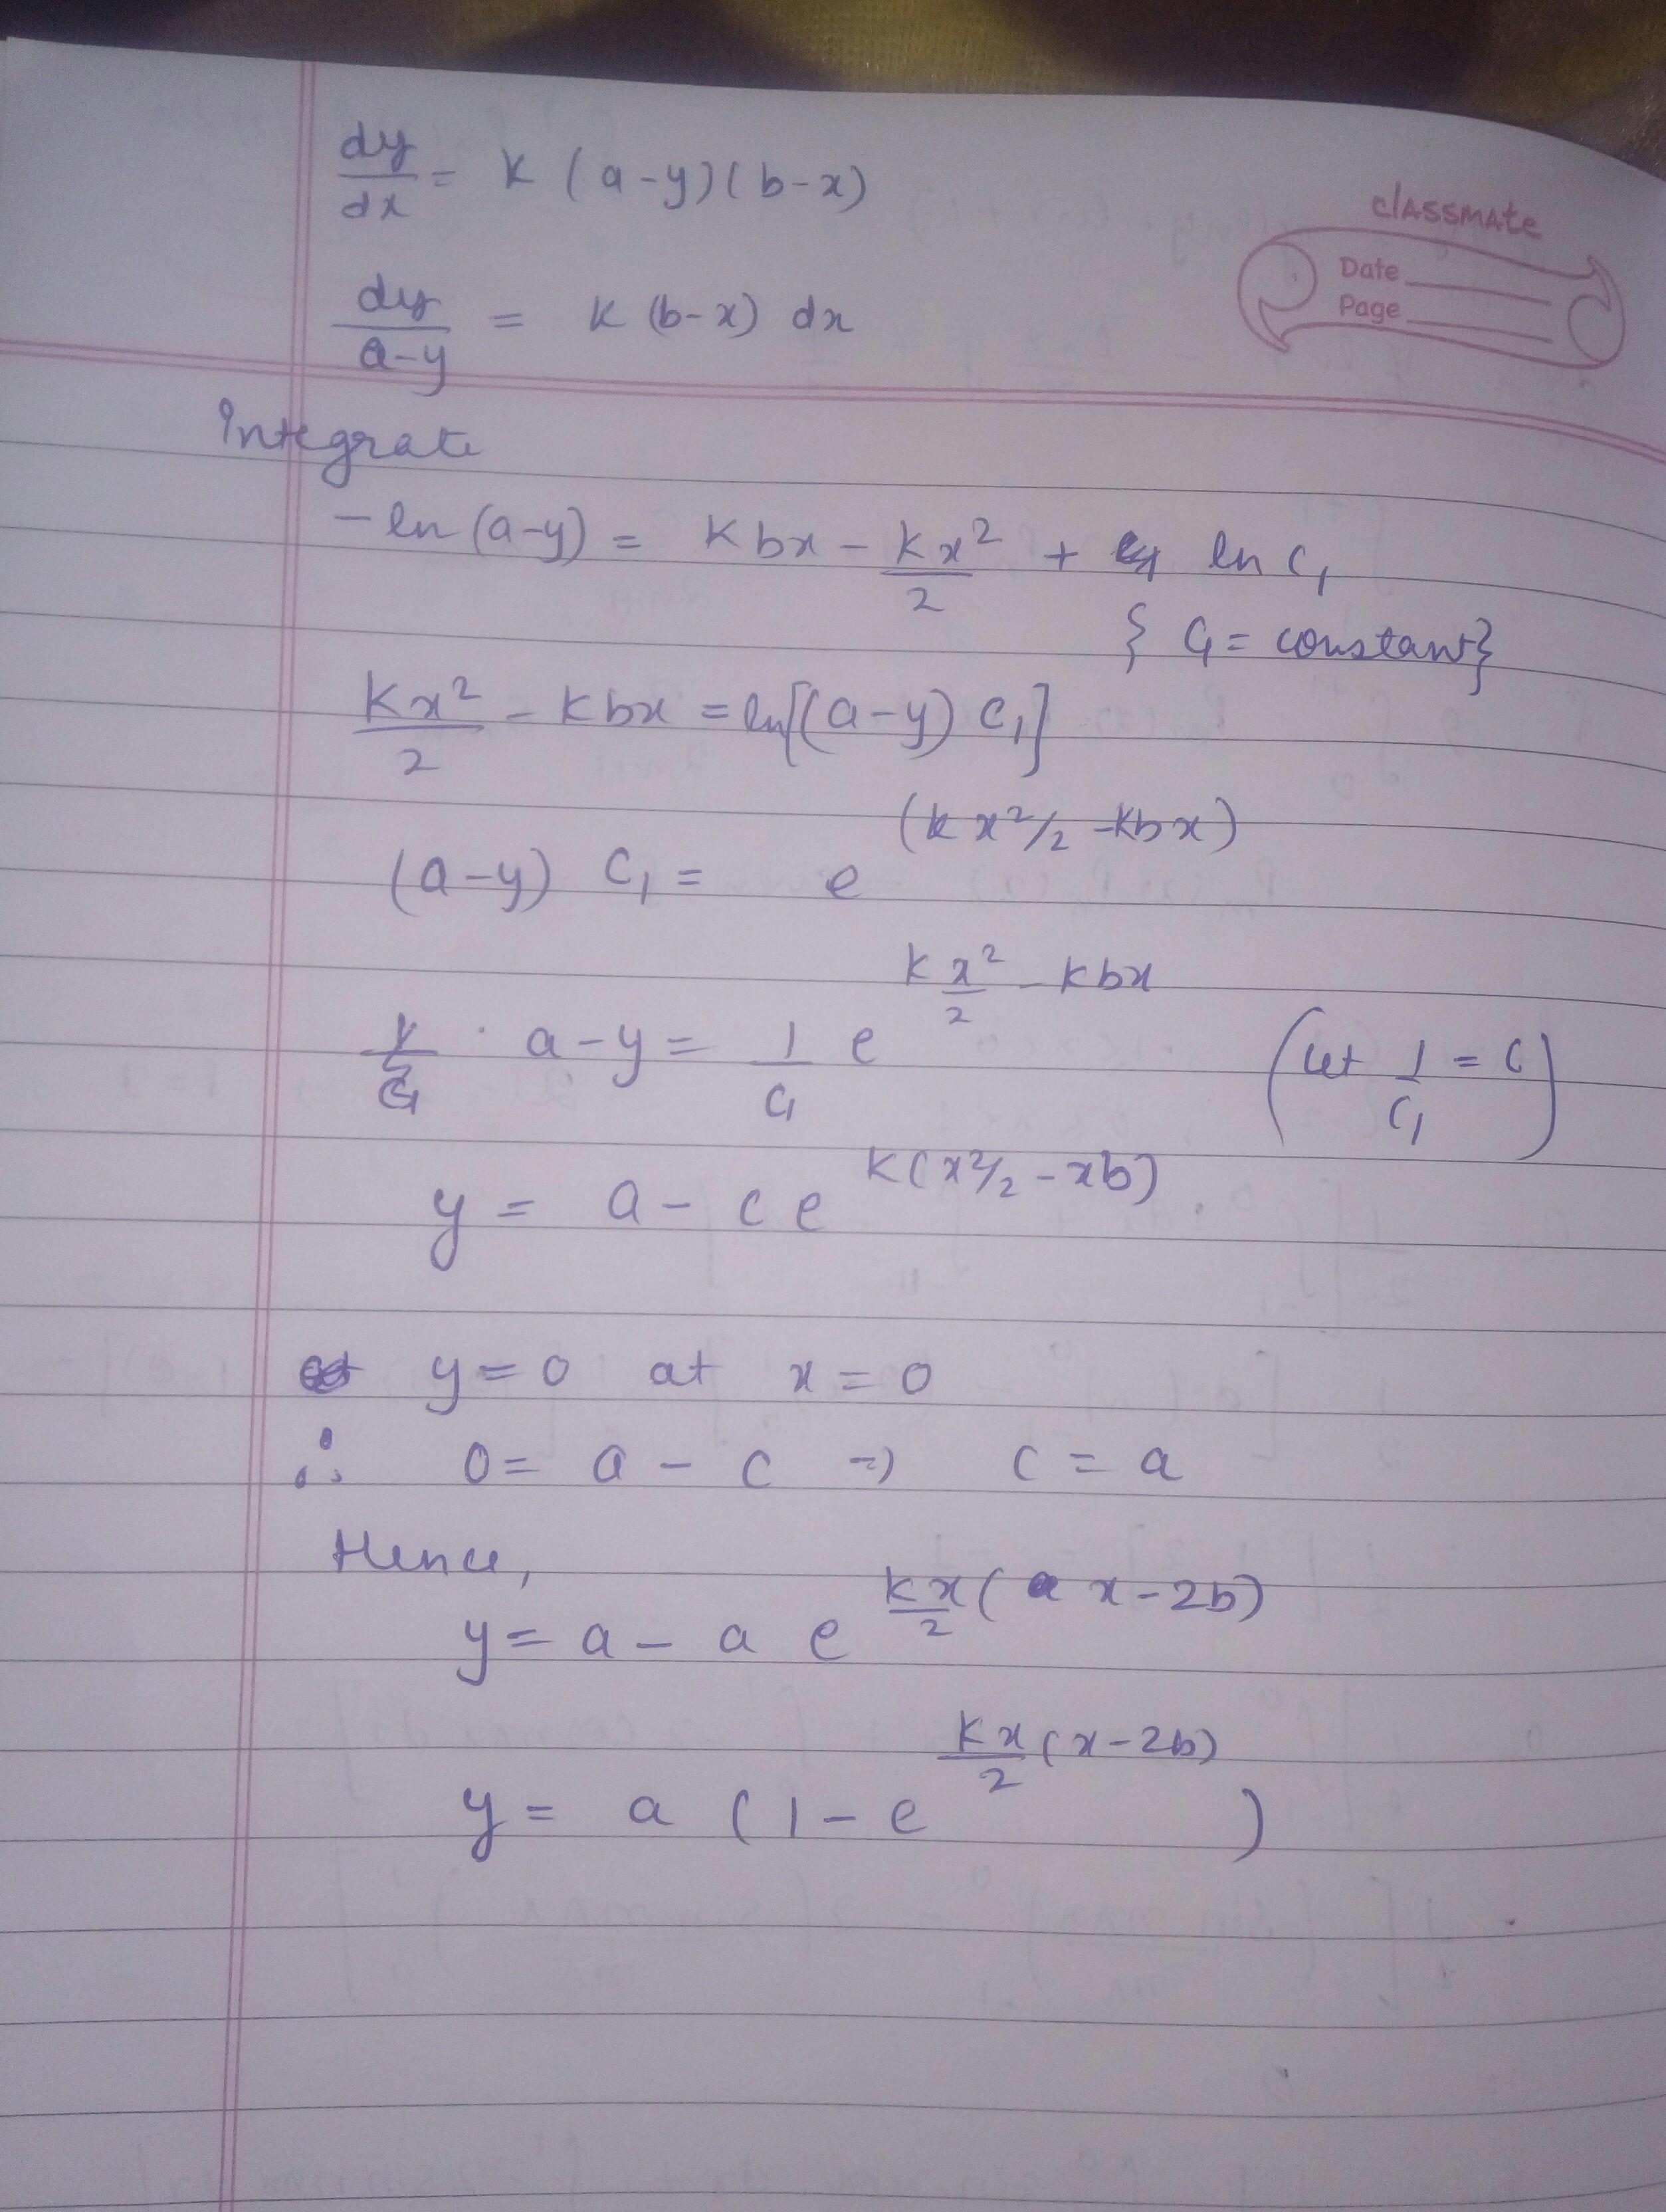 dy/dx = K (a-y)(b-x)
classmate
Date
Page
dy/(a-y) = K (b-x) dx
Integrate
- ln (a-y) = Kbx - Kx²/2 + ln C₁
{ C₁ = constant}
Kx²/2 - Kbx = ln[(a-y) C₁]
(a-y) C₁ = e^(kx²/2 - Kbx)
a-y = 1/C₁ e^(Kx²/2 - Kbx) (let 1/C₁ = C)
y = a - c e^(K(x²/2 - xb))
y = 0 at x = 0
∴ 0 = a - c ⇒ c = a
Hence,
y = a - a e^(Kx/2 (x-2b))
y = a (1 - e^(Kx/2 (x-2b)))